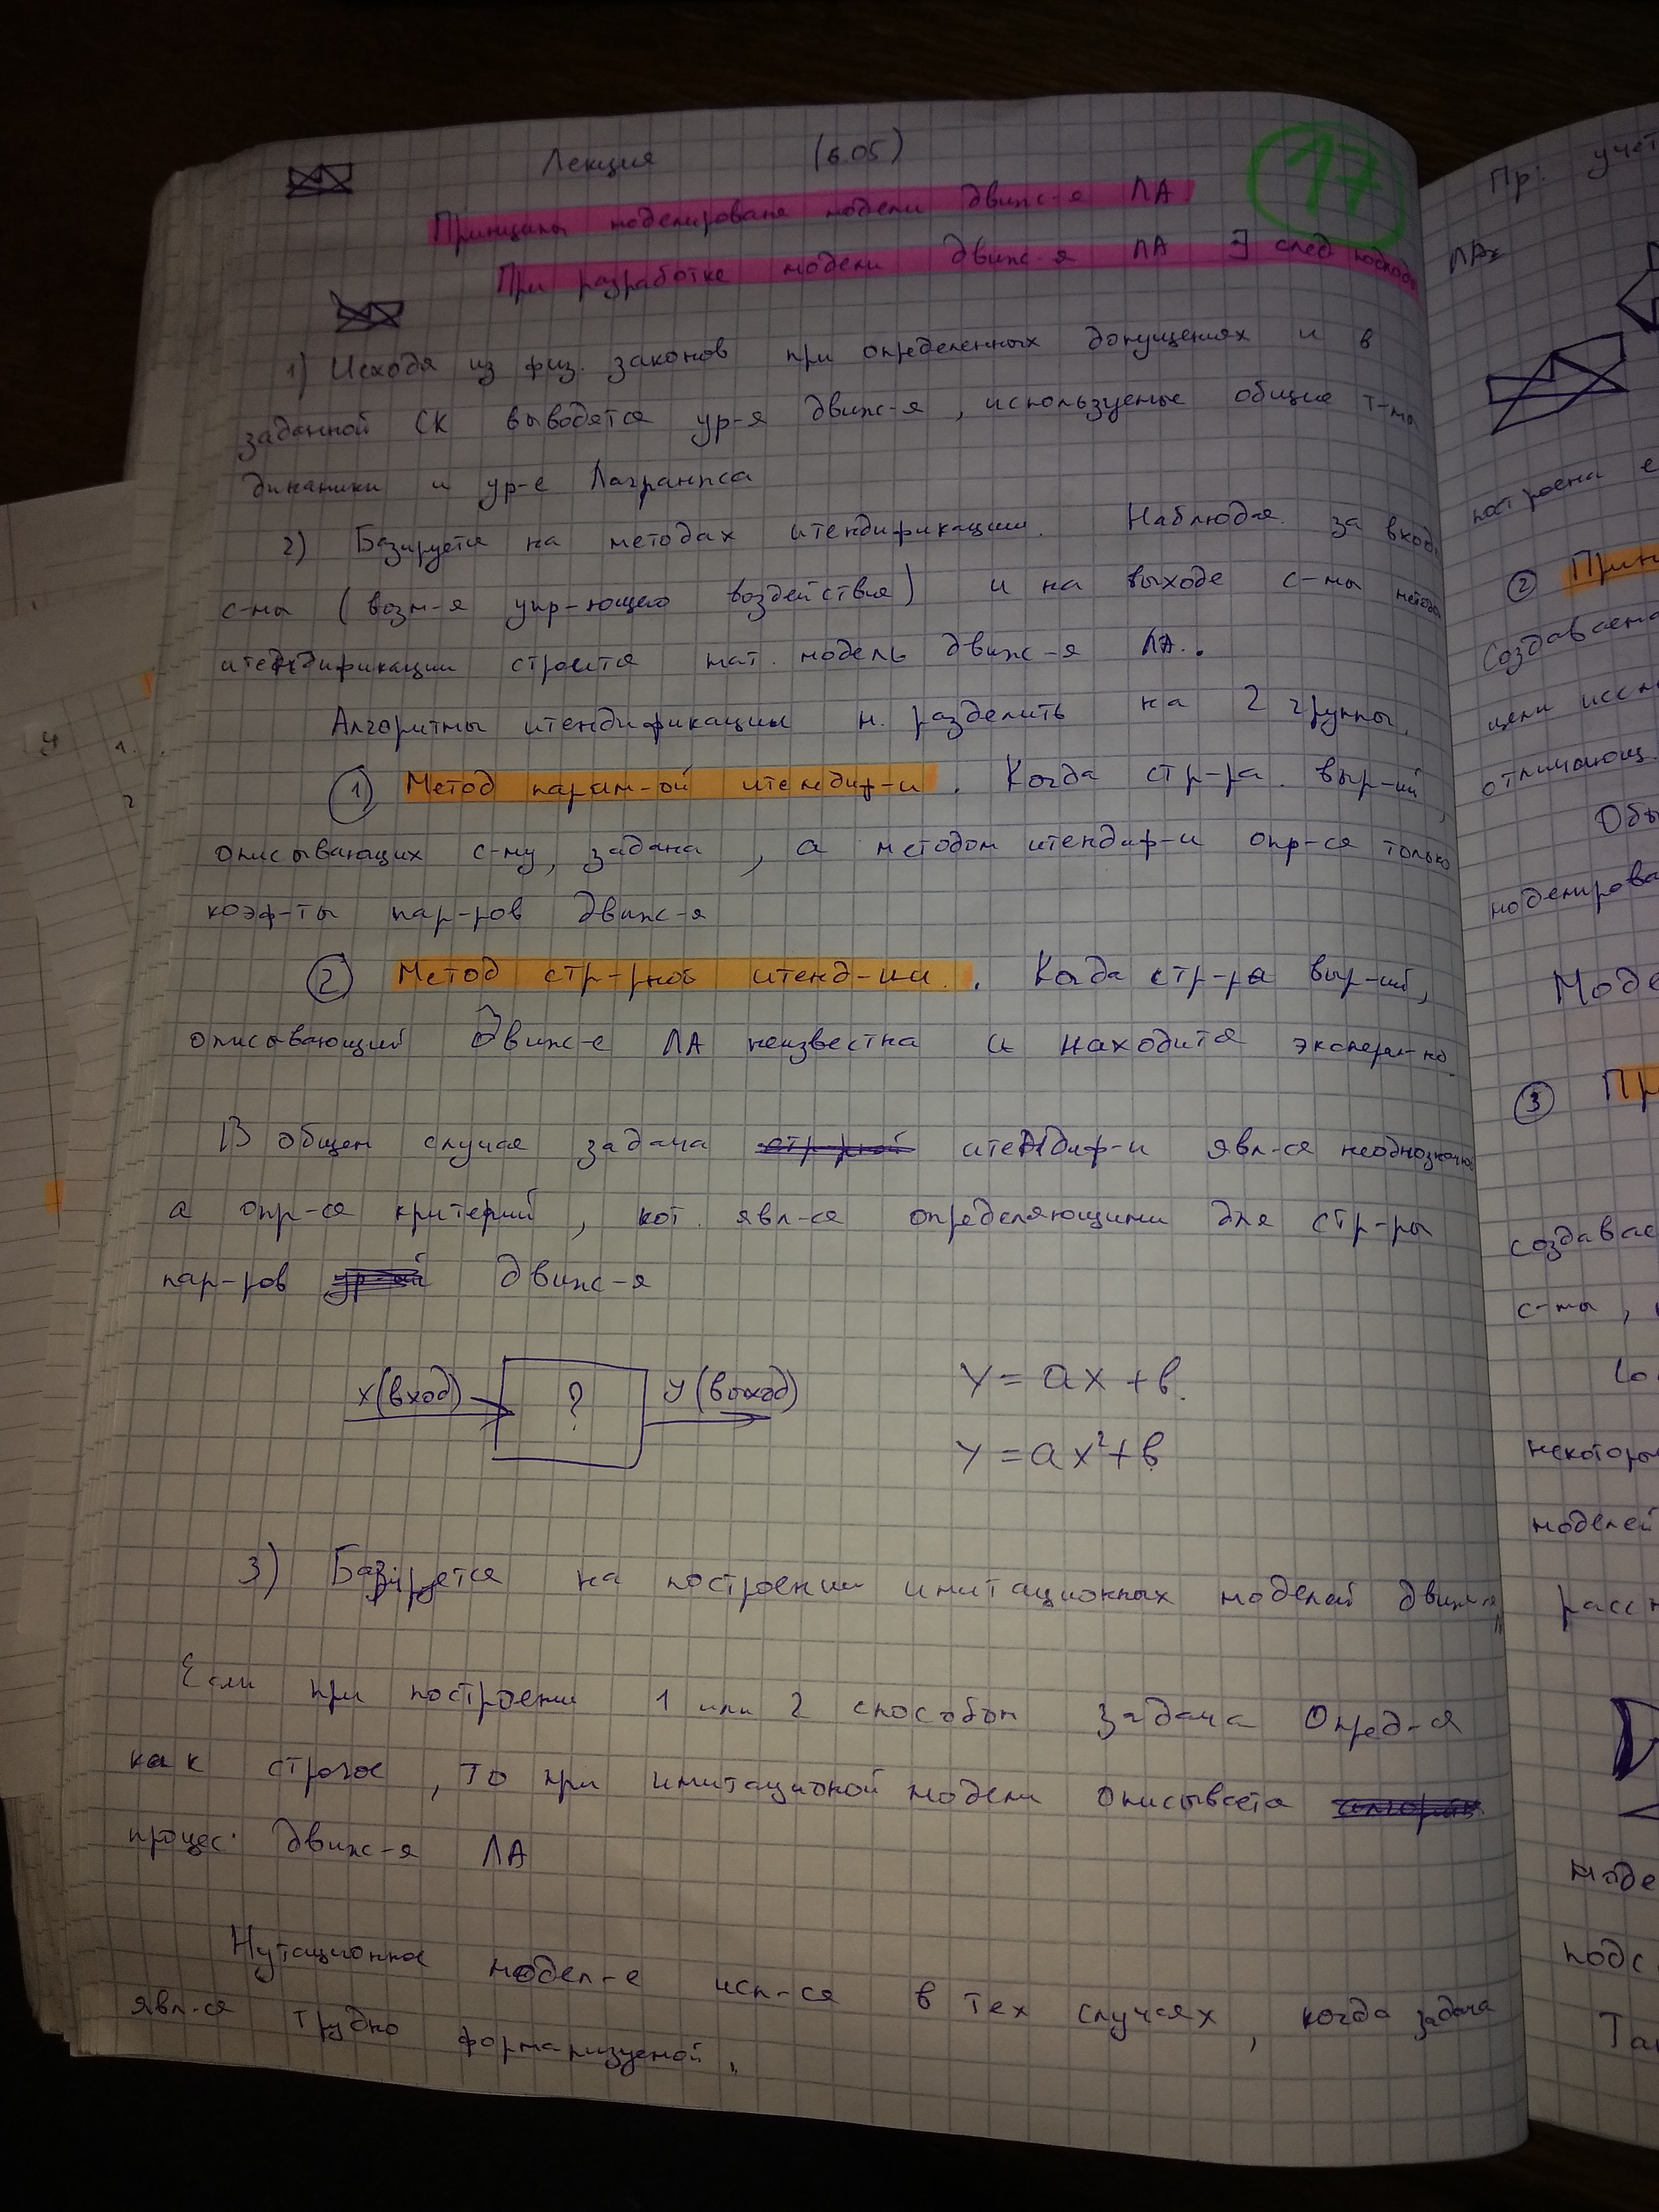 Лекция (6.05)
17
Принципы моделированя модели движ-я ЛА
При разработке модели движ-я ЛА ∃ след подходы
1) Исходя из физ. законов при определенных допущениях и в
заданной СК выводятся ур-я движ-я, используемые общие т-мы
динамики и ур-е Лагранжса
2) Базируется на методах итендификации. Наблюдая за входы
с-мы (возм-я упр-ющего воздействия) и на выходе с-мы метода
итендификации строится мат. модель движ-я ЛА.
Алгоритмы итендификации м. разделить на 2 группы.
① Метод парам-ой итендиф-и. Когда стр-ра выр-ий,
описывающих с-му, задана, а методом итендиф-и опр-ся только
коэф-ты пар-ров движ-я
② Метод стр-рной итенд-ии. Когда стр-ра выр-ий,
описывающий движ-е ЛА неизвестна и находится эксперим-но
В общем случае задача итендиф-и явл-ся неоднозначно
а опр-ся критерий, кот. явл-ся определяющими для стр-ры
пар-ров движ-я
x(вход) ? y(выход) y = ax + b.
y = ax²+b
3) Базируется на построении имитационных моделей движ-я
Если при построени 1 или 2 способом задача опред-я
как строгое, то при имитационой модели описывается
процес движ-я ЛА
Нутационное модел-е исп-ся в тех случаях, когда задача
явл-ся трудно формаризуемой.
Пр: учет
ЛА
построена е
② Прин
Создаваема
цели иссл
отличающ.
Обы
моделирова
Моде
③ Пр
создавае
с-мы,
некоторы
моделей
расс
моде
подс
Так